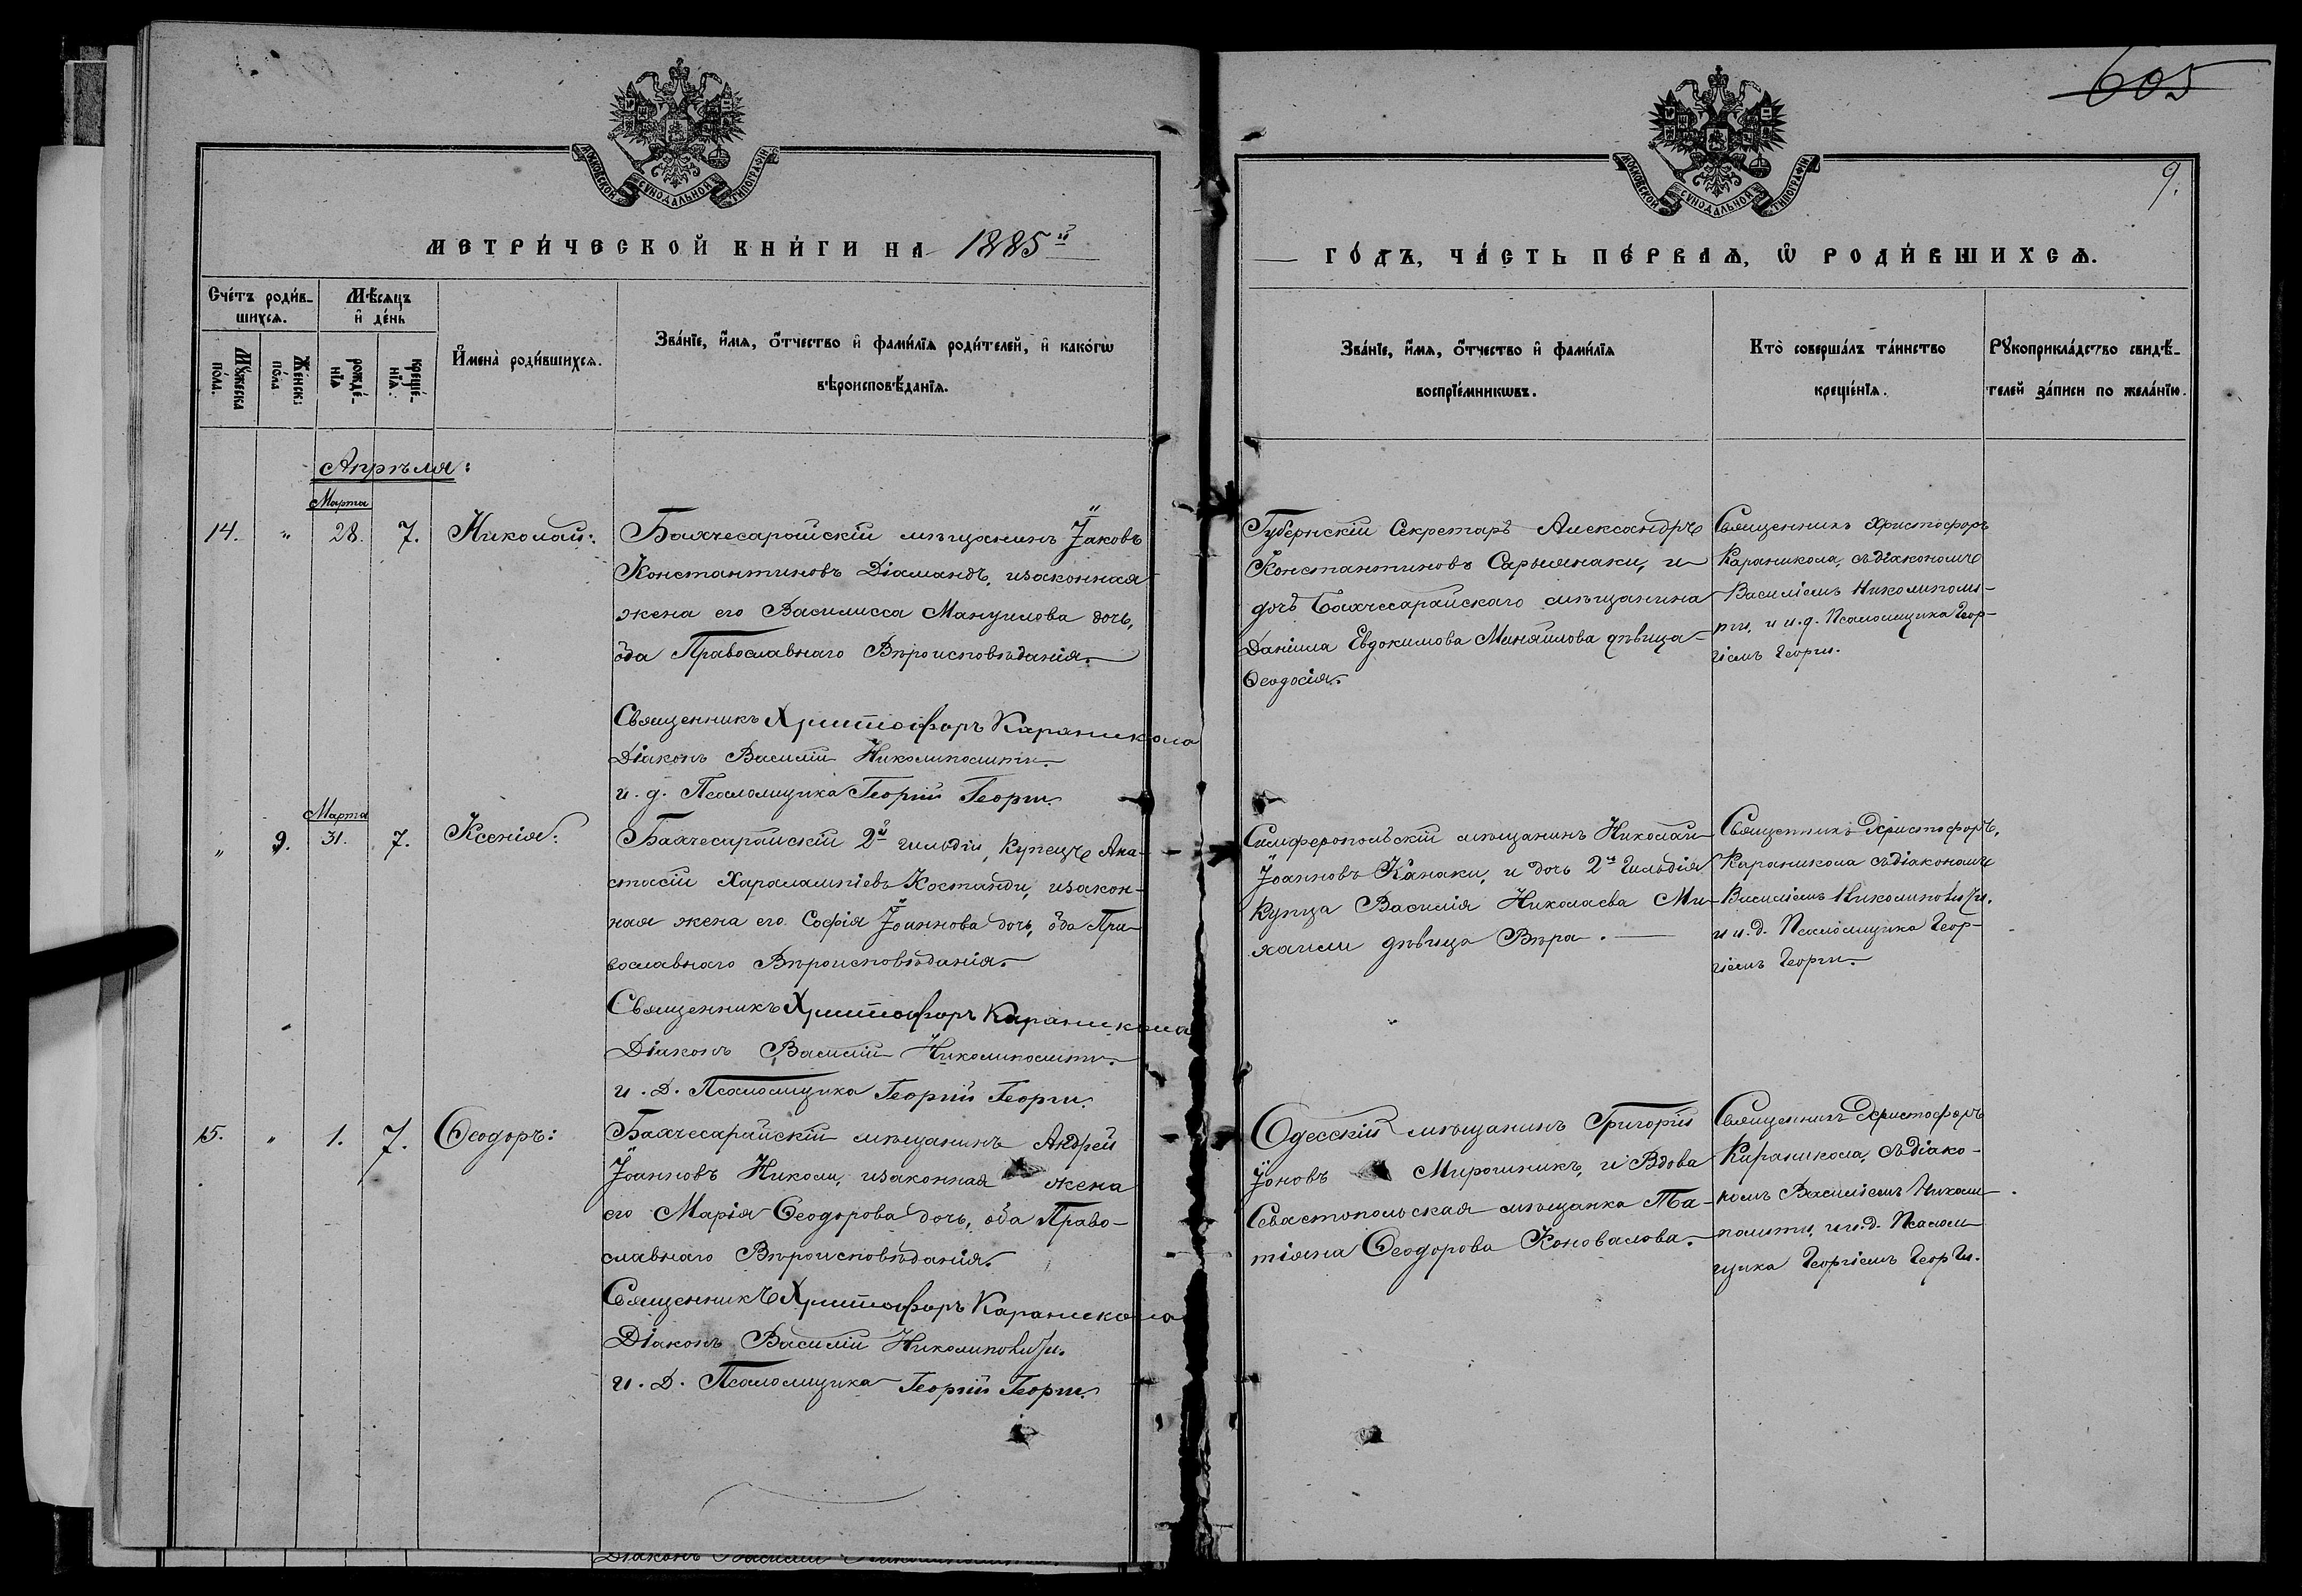 605
9.
МОСКОВСКОЙ СѴНОДАЛЬНОЙ ТИПОГРАФІИ
МОСКОВСКОЙ СѴНОДАЛЬНОЙ ТИПОГРАФІИ
МЕТРИ́ЧЕСКОЙ КНИ́ГИ НА 1885й
ГО́ДЪ, ЧА́СТЬ ПЕ́РВАѦ, Ѡ҆ РОДИ́ВШИХСѦ.
Сче́тъ роди́в-
шихсѧ.
Мꙋ́жеска
по́ла.
Же́нск:
по́ла
Мѣ́сѧцъ
и҆ де́нь
рожде́-
нїѧ
креще́-
нїѧ.
И҆мена̀ роди́вшихсѧ.
Зва́нїе, и҆́мѧ, ѻ҆́тчество и҆ фами́лїѧ роди́телей, и҆ како́гѡ
вѣроисповѣ́данїѧ.
Зва́нїе, и҆́мѧ, ѻ҆́тчество и҆ фами́лїѧ
воспрїе́мникѡвъ.
Кто̀ соверша́лъ та́инство
креще́нїѧ.
Рꙋкоприкла́дство свидѣ́-
телей за́писи по жела́нїю.
Апрѣля:
Марта
14. " 28. 7. Николай:
Бахчесарайскій мѣщанинъ Іаковъ
Константиновъ Діамандъ, изаконная
жена его Василисса Мануилова дочь,
оба Православнаго Вѣроисповѣданія.
Священникъ Христофоръ Караникола
Діаконъ Василій Николиполити.
и. д. Псаломщика Георгій Георги.
Губернскій Секретарь Александръ
Константиновъ Сарыянаки, и
дочь Бахчесарайскаго мѣщанина
Даніила Евдокимова Миняйлова дѣвица
Ѳеодосія.
Священникъ Христофоръ
Караникола, съдіакономъ
Василіемъ Николиполи-
ти, и и.д. Псаломщика Геор-
гіемъ Георги.
Марта
" 9. 31. 7. Ксенія:
Бахчесарайскій 2й гильдіи, купецъ Ана-
стасій Харалампіевъ Костанди, изакон-
ная жена его Софія Іоаннова дочь, оба Пра-
вославнаго Вѣроисповѣданія.
Священникъ Христофоръ Караникола
Діаконъ Василій Николиполити.
и. д. Псаломщика Георгій Георги.
Симферопольскій мѣщанинъ Николай
Іоанновъ Канаки, и дочь 2й Гильдія
Купца Василія Николаева Ми-
хаили дѣвица Вѣра.
Священникъ Христофоръ,
Караникола съдіакономъ
Василіемъ Николиполити.
и и.д. Псаломщика Геор-
гіемъ Георги.
15. " 1. 7. Ѳеодоръ:
Бахчесарайскій мѣщанинъ Андрей
Іоанновъ Николи, изаконная жена
его Марія Ѳеодорова дочь, оба Право-
славнаго Вѣроисповѣданія.
Священникъ Христофоръ Караникола
Діаконъ Василій Николиполити.
и. д. Псаломщика Георгій Георги.
Одесскій мѣщанинъ Григорій
Іоновъ Мирошникъ, и Вдова
Севастопольская мѣщанка Та-
тіяна Ѳеодорова Коновалова.
Священникъ Христофоръ
Караникола, съдіако-
номъ Василіемъ Николи-
полити, и и.д. Псалом-
щика Георгіемъ Георги.
Діаконъ Василій